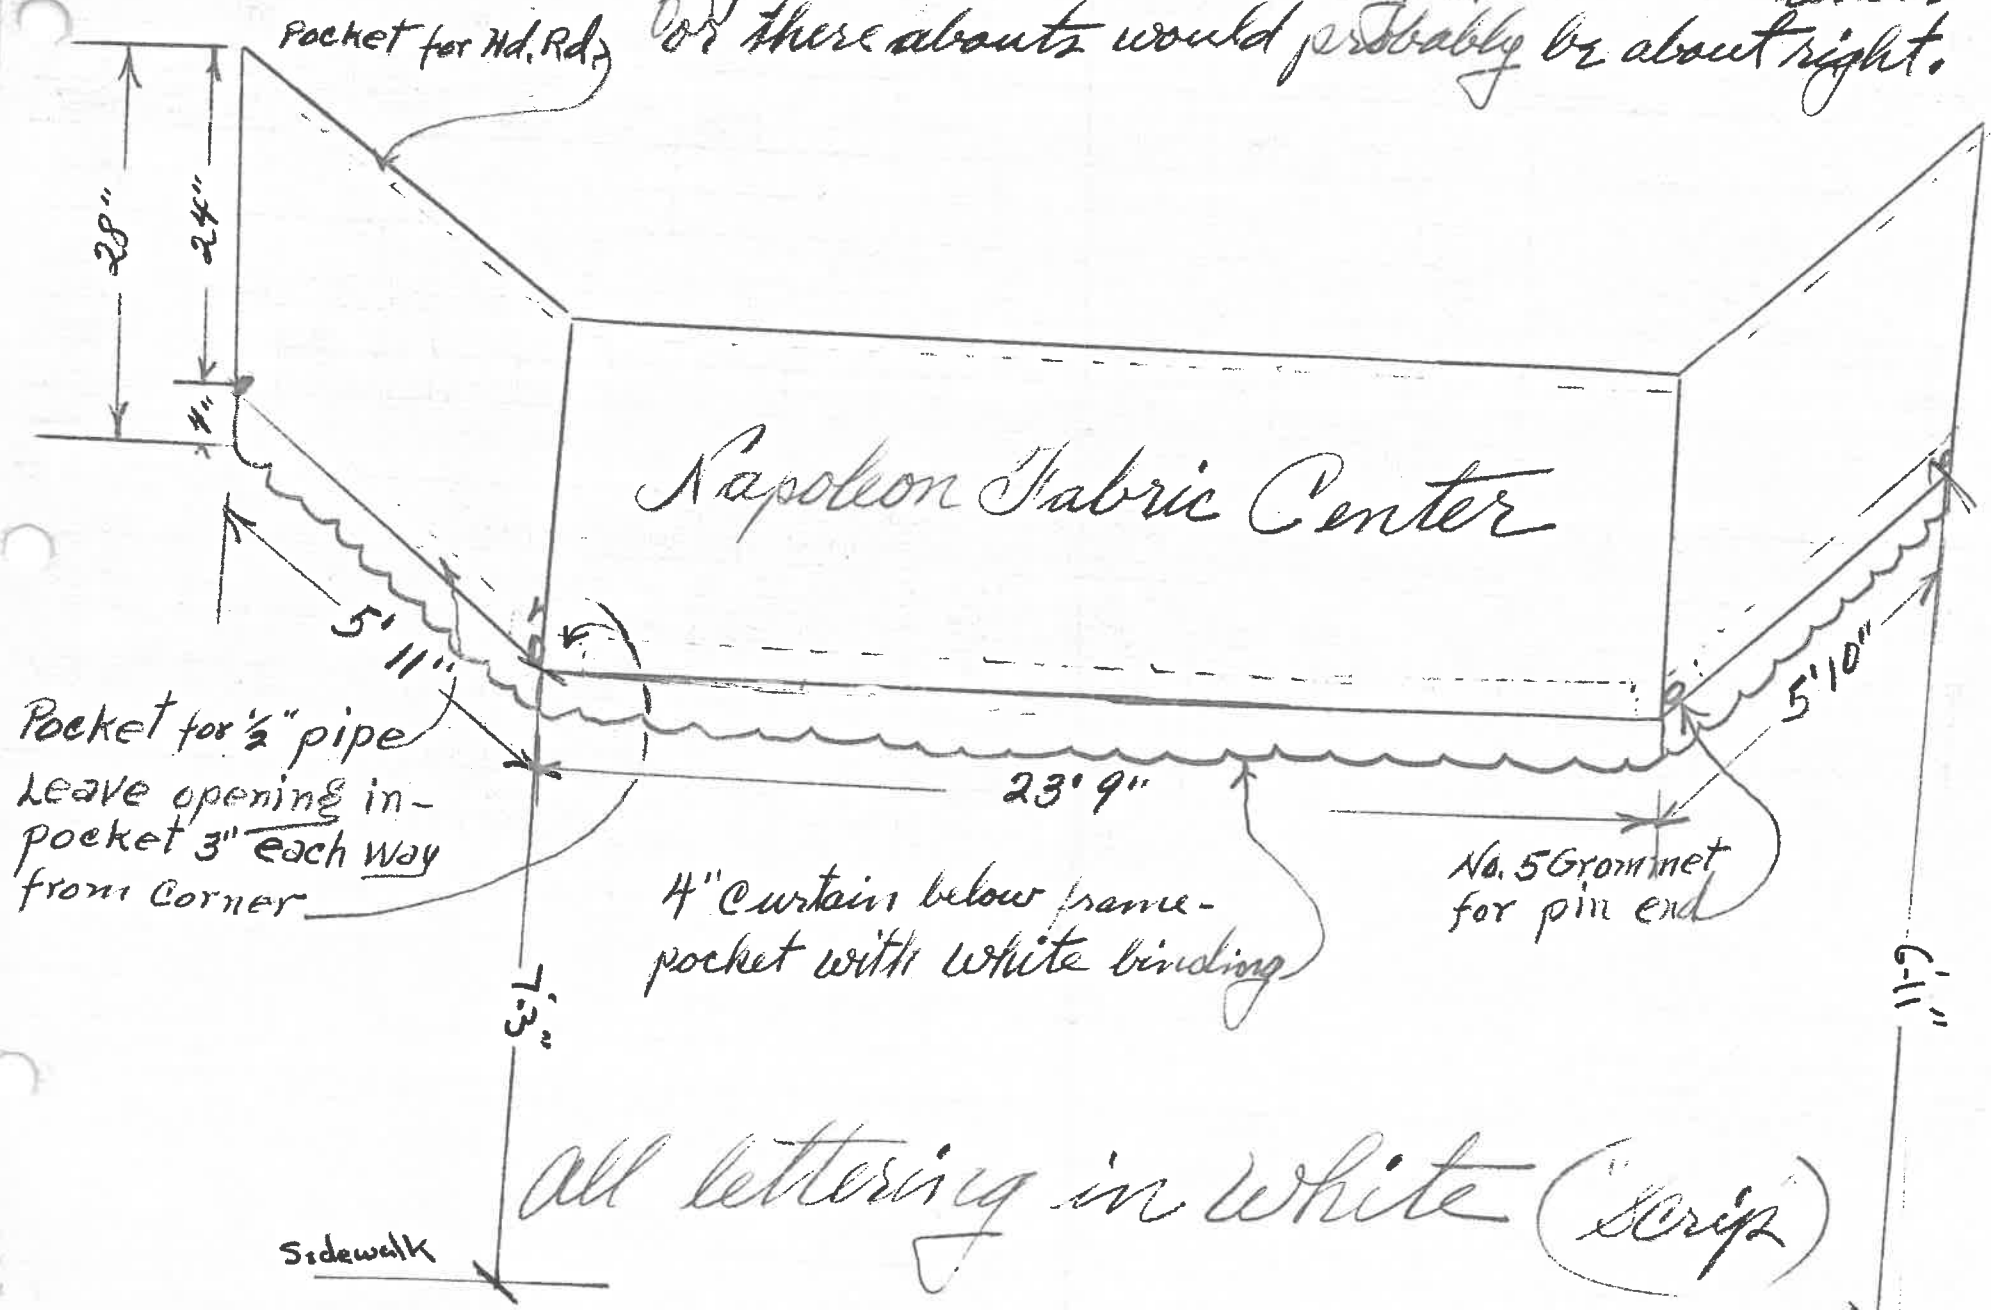 Pocket for Hd. Rd.
or there abouts would probably be about right.
28"
24"
4"
Napoleon Fabric Center
5' 11"
5' 10"
23' 9"
Pocket for ½" pipe
Leave opening in-
pocket 3" each way
from Corner
4" Curtain below frame-
pocket with white binding
No. 5 Grommet
for pin end
7'-3"
6'-11"
all lettering in white ("scrip")
Sidewalk